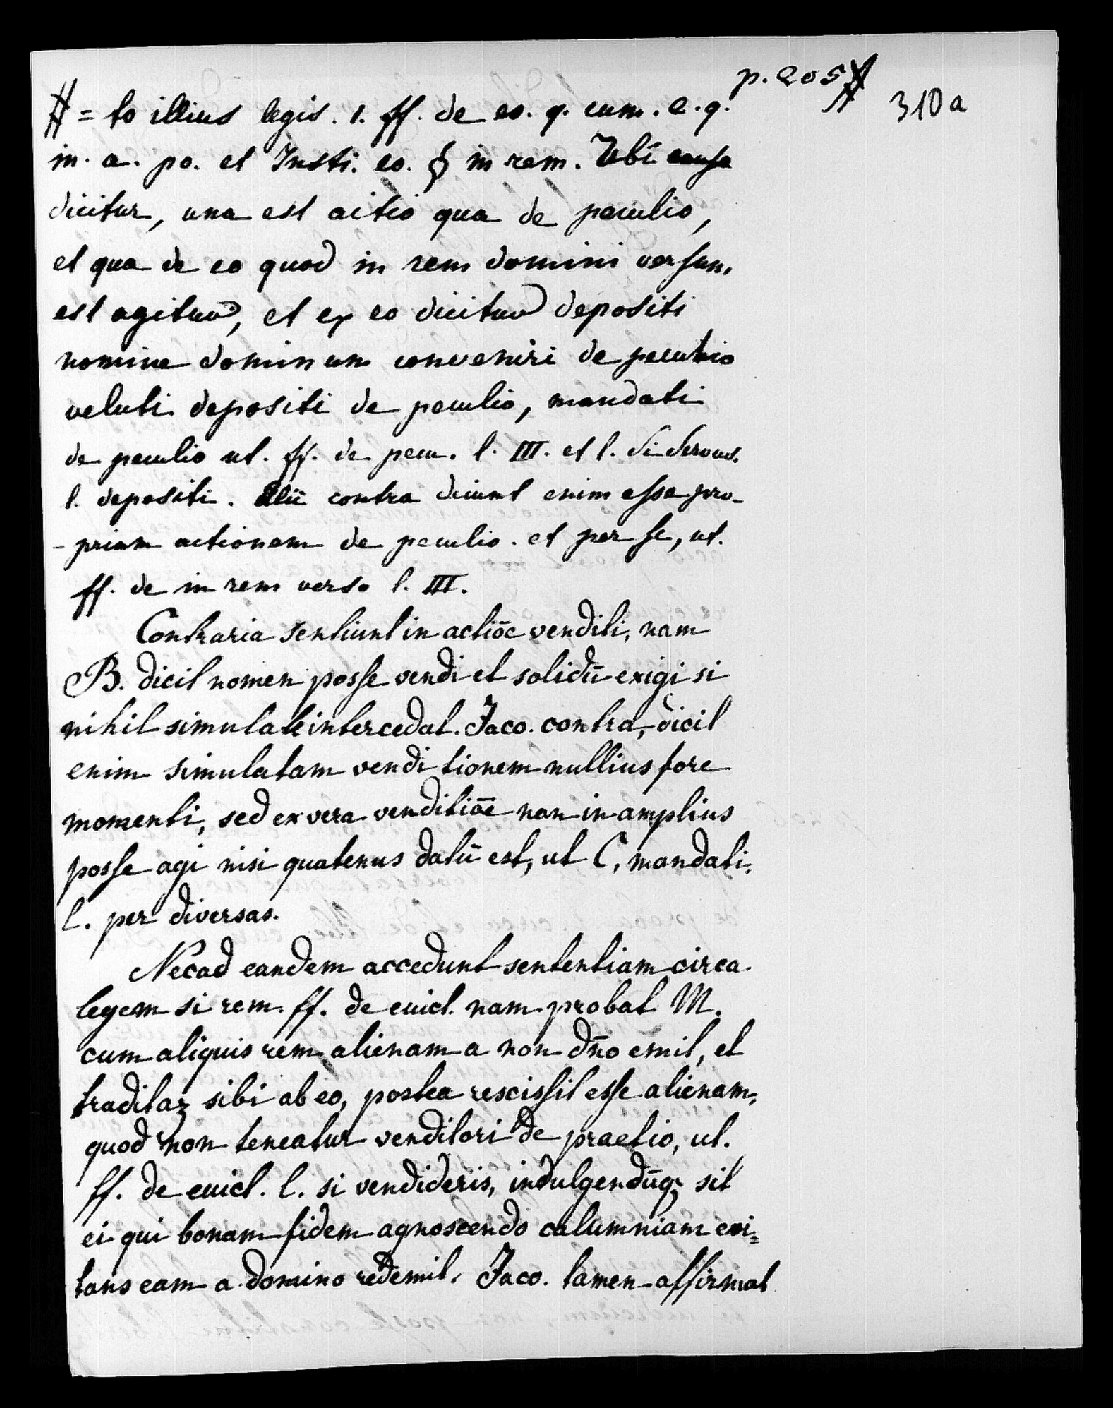 p. 205 #
310a
# = to illius legis. 1. ff. de eo. q. cum. e. q.
in. a. po. et Insti. eo. § in rem. Ubi causa
dicitur, una est actio qua de peculio,
et qua de eo quod in rem domini versum
est agitur, et ex eo dicitur depositi
nomine dominum conveniri de peculio
veluti depositi de peculio, mandati
de peculio ut. ff. de pecu. l. III. et l. si servus.
l. depositi. Alii contra dicunt enim esse pro-
-priam actionem de peculio. et per se, ut.
ff. de in rem verso l. III.
Contraria sentiunt in actiōe venditi, nam
B. dicit nomen posse vendi et solidū exigi si
nihil simulate intercedat. Jaco. contra, dicit
enim simulatam venditionem nullius fore
momenti, sed ex vera venditiōe non in amplius
posse agi nisi quatenus datū est, ut C, mandati.
l. per diversas.
Nec ad eandem accedunt sententiam circa
legem si rem. ff. de evict. nam probat M.
cum aliquis rem alienam a non dño emit, et
traditaz sibi ab eo, postea rescissit esse alienam,
quod non teneatur venditori de praetio, ut.
ff. de evict. l. si vendideris, indulgendūq; sit
ei qui bonam fidem agnoscendo calumniam evi=
tans eam a domino redemit. Jaco. tamen affirmat